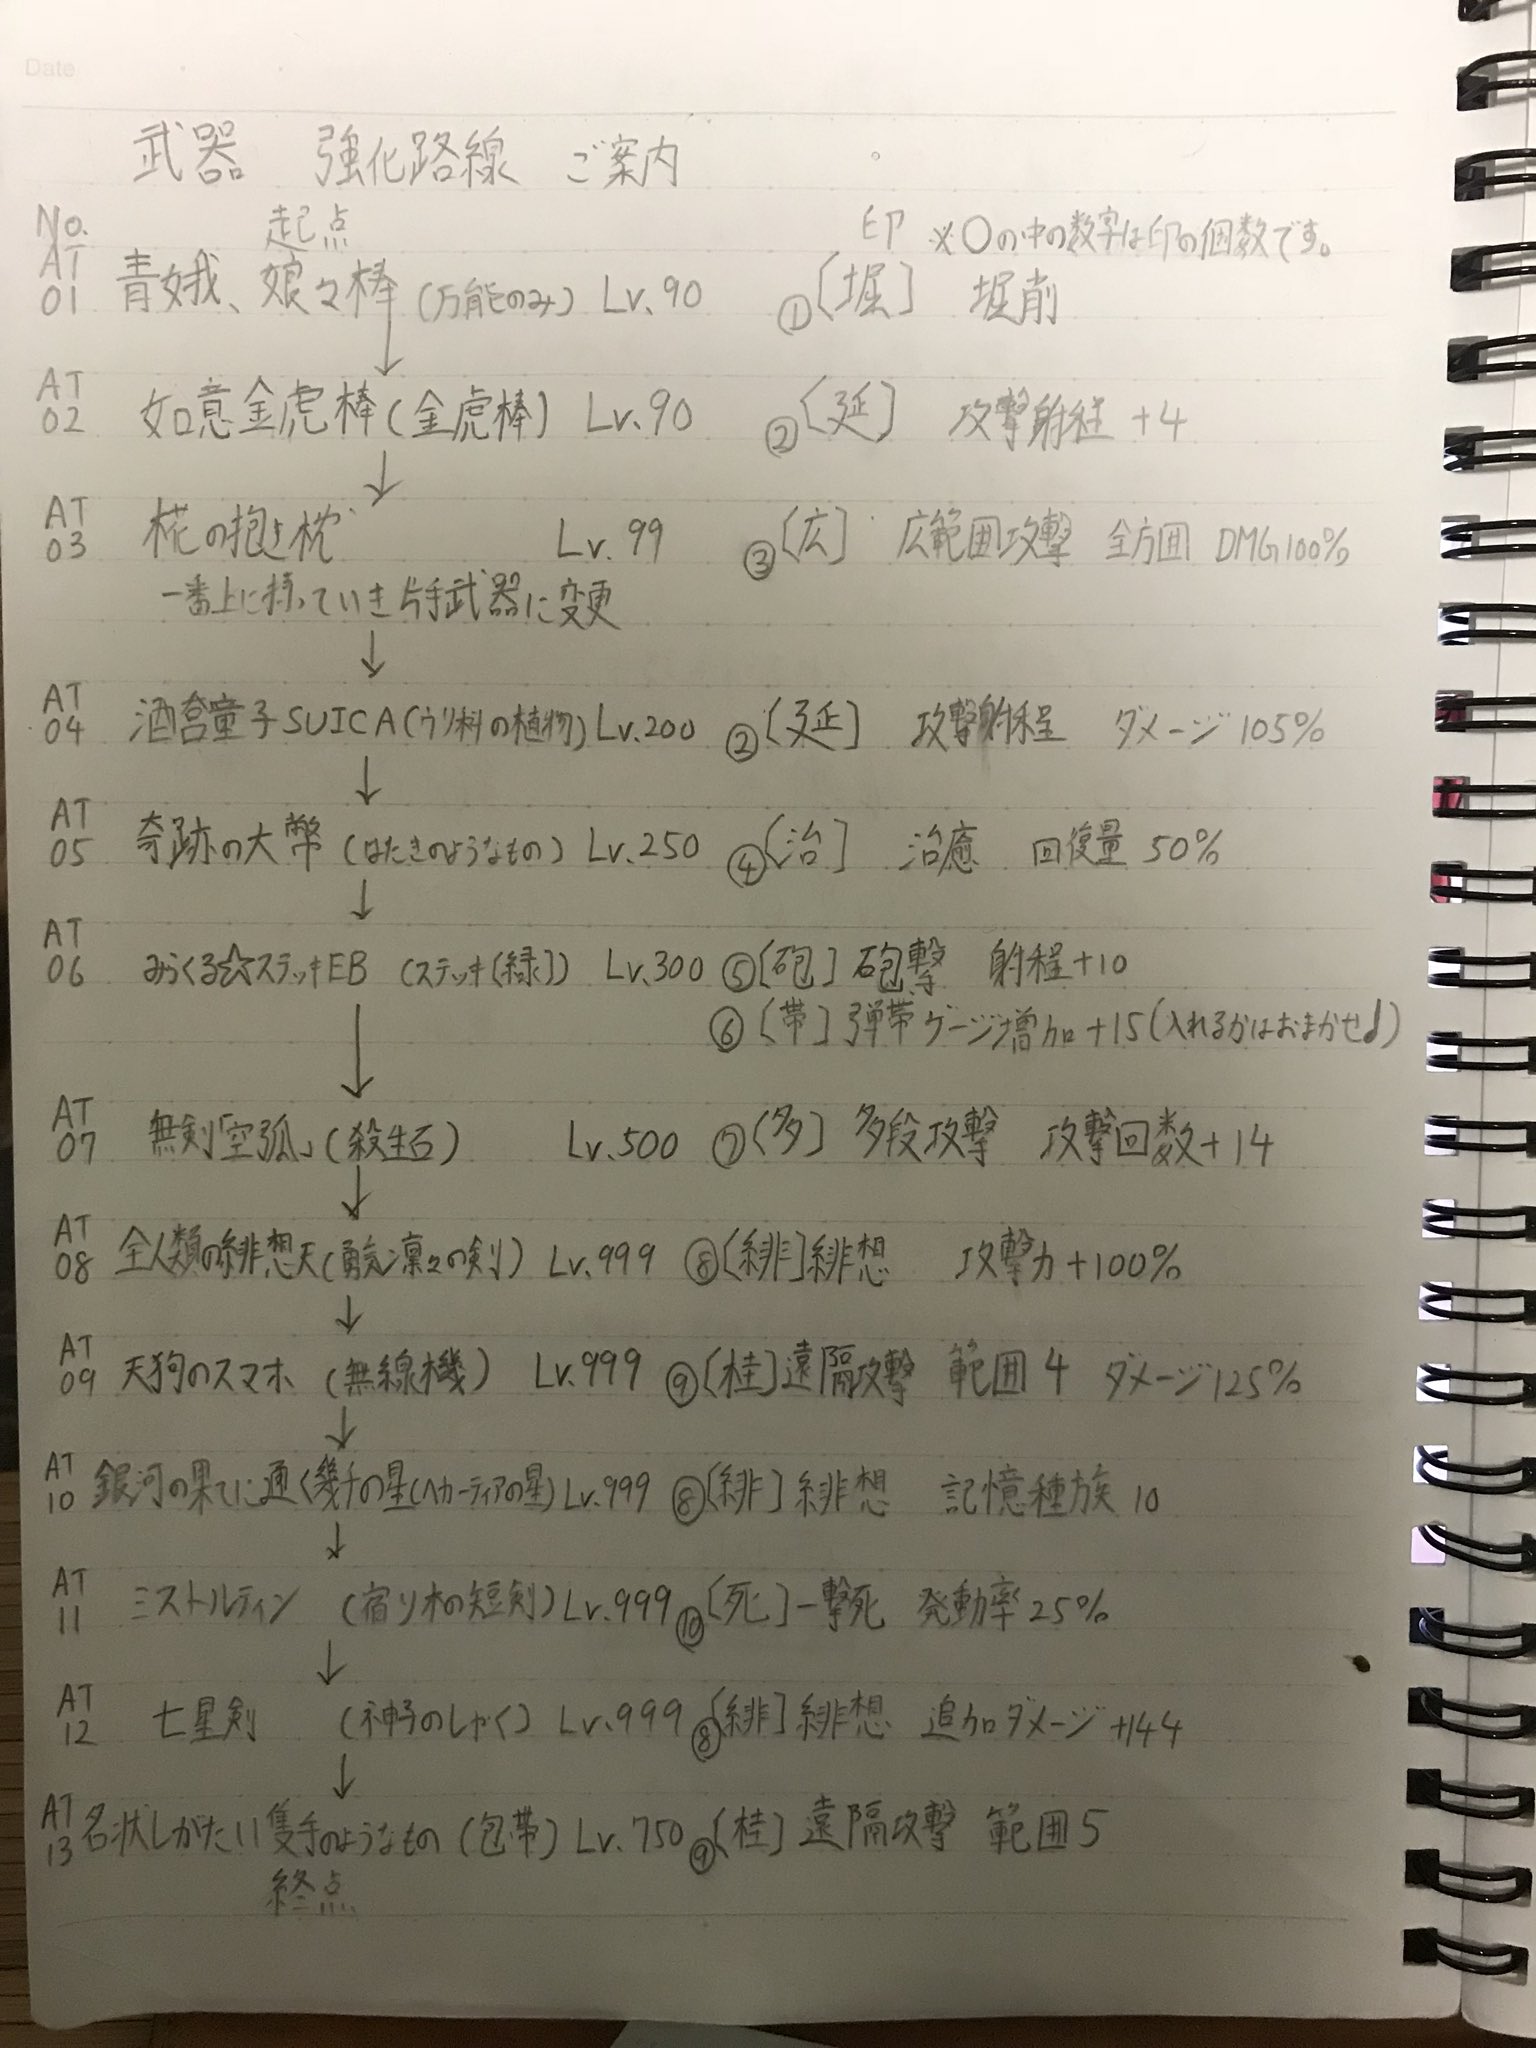 Date
武器 強化路線 ご案内
No. 起点 印 ※○の中の数字は印の個数です。
AT 01 青娥、娘々棒 (万能のみ) Lv.90 ①〔掘〕 掘削
↓
AT 02 如意金虎棒(金虎棒) Lv.90 ②〔延〕 攻撃射程 +4
↓
AT 03 椛の抱き枕 Lv.99 ③〔広〕 広範囲攻撃 全方囲 DMG100%
一番上に持っていき片手武器に変更
↓
AT 04 酒呑童子SUICA(ウリ科の植物) Lv.200 ②〔延〕 攻撃射程 ダメージ 105%
↓
AT 05 奇跡の大幣 (はたきのようなもの) Lv.250 ④〔治〕 治癒 回復量 50%
↓
AT 06 みらくる☆ステッキEB (ステッキ〔緑〕) Lv.300 ⑤〔砲〕砲撃 射程+10
⑥〔帯〕弾帯 ゲージ増加+15(入れるかはおまかせ♩)
↓
AT 07 無剣「空弧」(殺生石) Lv.500 ⑦〔多〕 多段攻撃 攻撃回数+14
↓
AT 08 全人類の緋想天(勇気凛々の剣) Lv.999 ⑧〔緋〕緋想 攻撃力+100%
↓
AT 09 天狗のスマホ (無線機) Lv.999 ⑨〔桂〕遠隔攻撃 範囲4 ダメージ125%
↓
AT 10 銀河の果てに通く幾千の星(ヘカーティアの星) Lv.999 ⑧〔緋〕 緋想 記憶種族 10
↓
AT 11 ミストルティン (宿り木の短剣) Lv.999 ⑩〔死〕一撃死 発動率25%
↓
AT 12 七星剣 (神子のしゃく) Lv.999 ⑧〔緋〕緋想 追加ダメージ +144
↓
AT 13 名状しがたい隻手のようなもの (包帯) Lv.750 ⑨〔桂〕遠隔攻撃 範囲5
終点